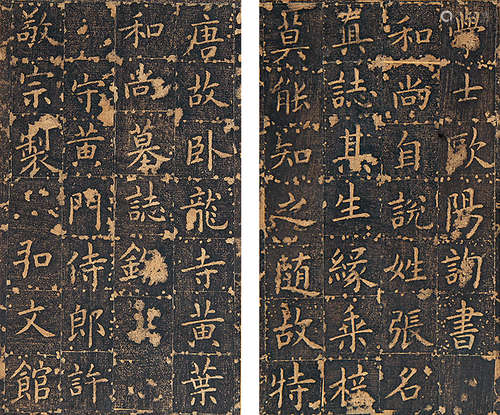 唐故卧龍寺黄葉
和尚墓誌銘
守黄門侍郎許
敬宗製弘文館
學士歐陽詢書
和尚自說姓張名
真誌其生緣桒梓
莫能知之随故特